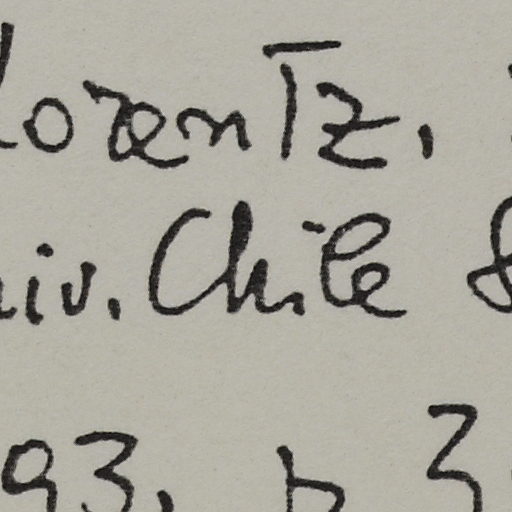 Lorentz,
niv. Chile 8
93, p 3